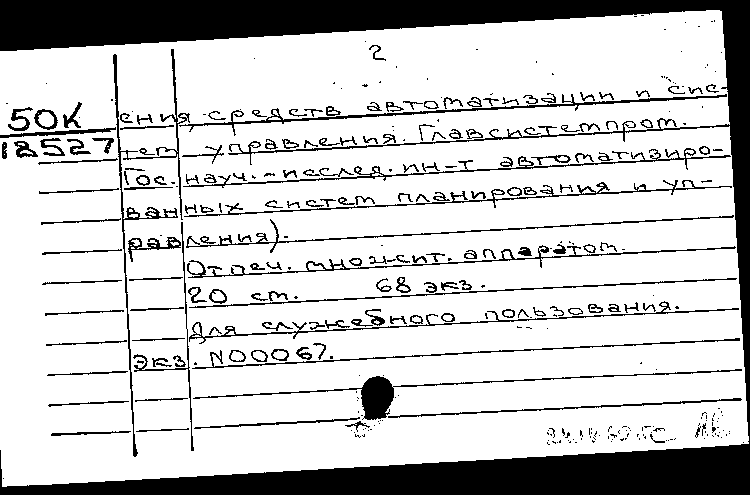 2
50К
12527
ения, средств автоматизации и сис-
тем управления. Главсистемпром.
Гос. науч.-исслед. ин-т автоматизиро-
ванных систем планирования и уп-
равления).
Отпеч. множит. аппаратом.
20 см. 68 экз.
Для служебного пользования.
Экз. N00067.